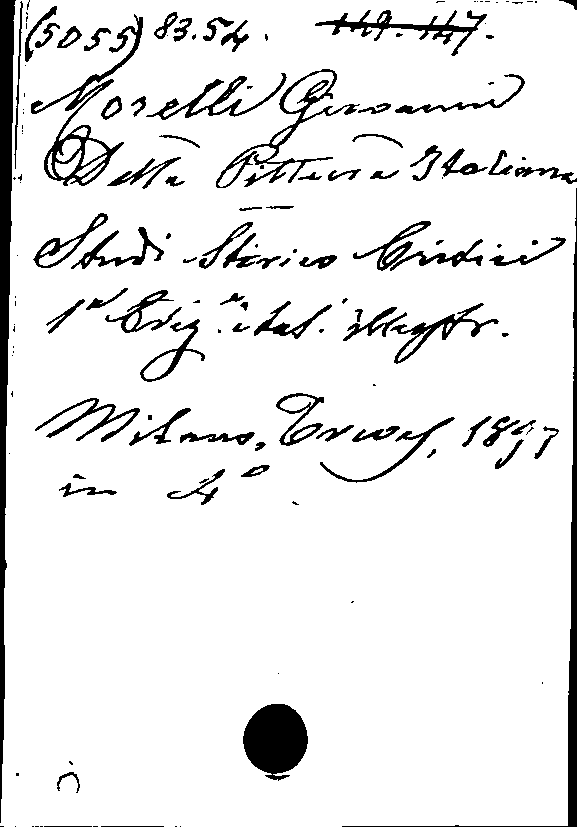 (5055) 83.54. 149.147.
Morelli Giovanni
Della Pittura Italiana
Studi Storico Critici
1ª Ediz.ⁿᵉ ital. illustr.
Milano, Treves, 1897
in 4°